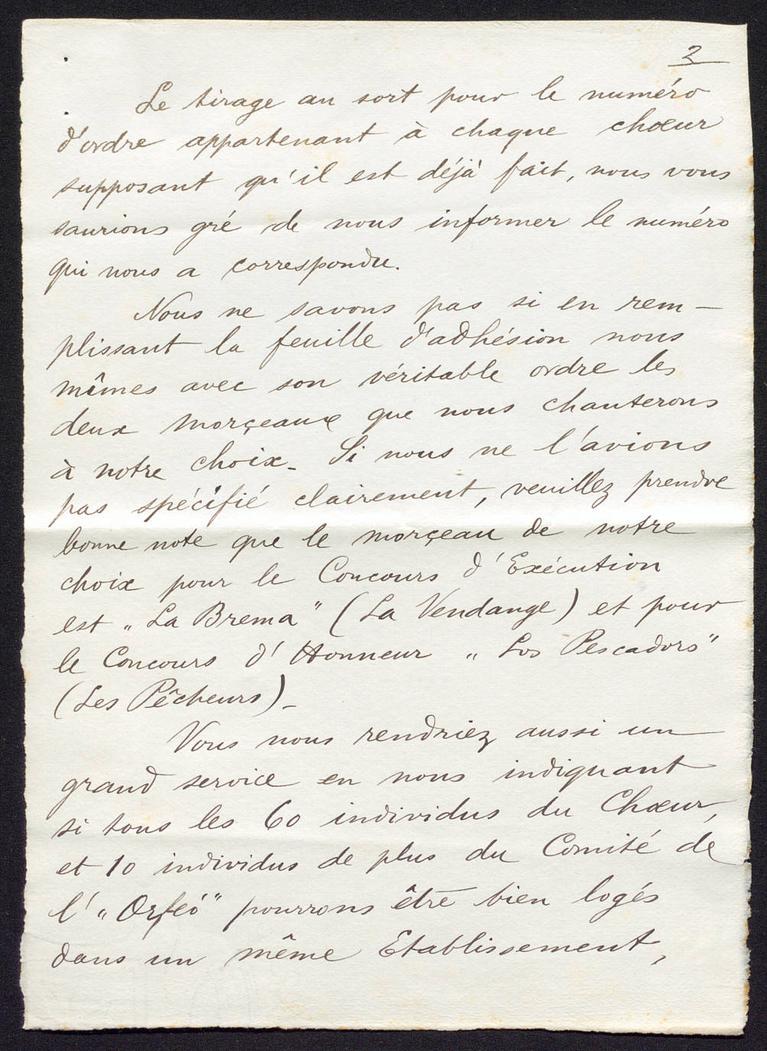 2
Le tirage au sort pour le numéro
d'ordre appartenant à chaque chœur
supposant qu'il est déjà fait, nous vous
saurions gré de nous informer le numéro
qui nous a correspondu.
Nous ne savons pas si en rem-
plissant la feuille d'adhésion nous
mîmes avec son véritable ordre les
deux morçeaux que nous chanterons
à notre choix. Si nous ne l'avions
pas spécifié clairement, veuillez prendre
bonne note que le morçeau de notre
choix pour le Concours d'Exécution
est „La Brema" (La Vendange) et pour
le Concours d'Honneur „Los Pescadors"
(Les Pêcheurs).
Vous nous rendriez aussi un
grand service en nous indiquant
si tous les 60 individus du Chœur,
et 10 individus de plus du Comité de
l'„Orfeó" pourrons être bien logés
dans un même Etablissement,